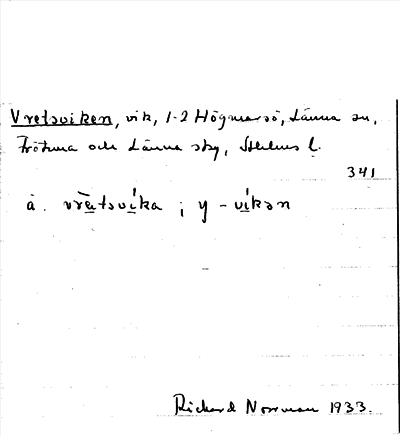 Vretsviken, vik, 1-2 Högmarsö, Länna sn,
Frötuna och Länna sky, Sthlms l.
341
å. vrä̀tsvíka ; y -víkən
Rickard Norrman 1933.